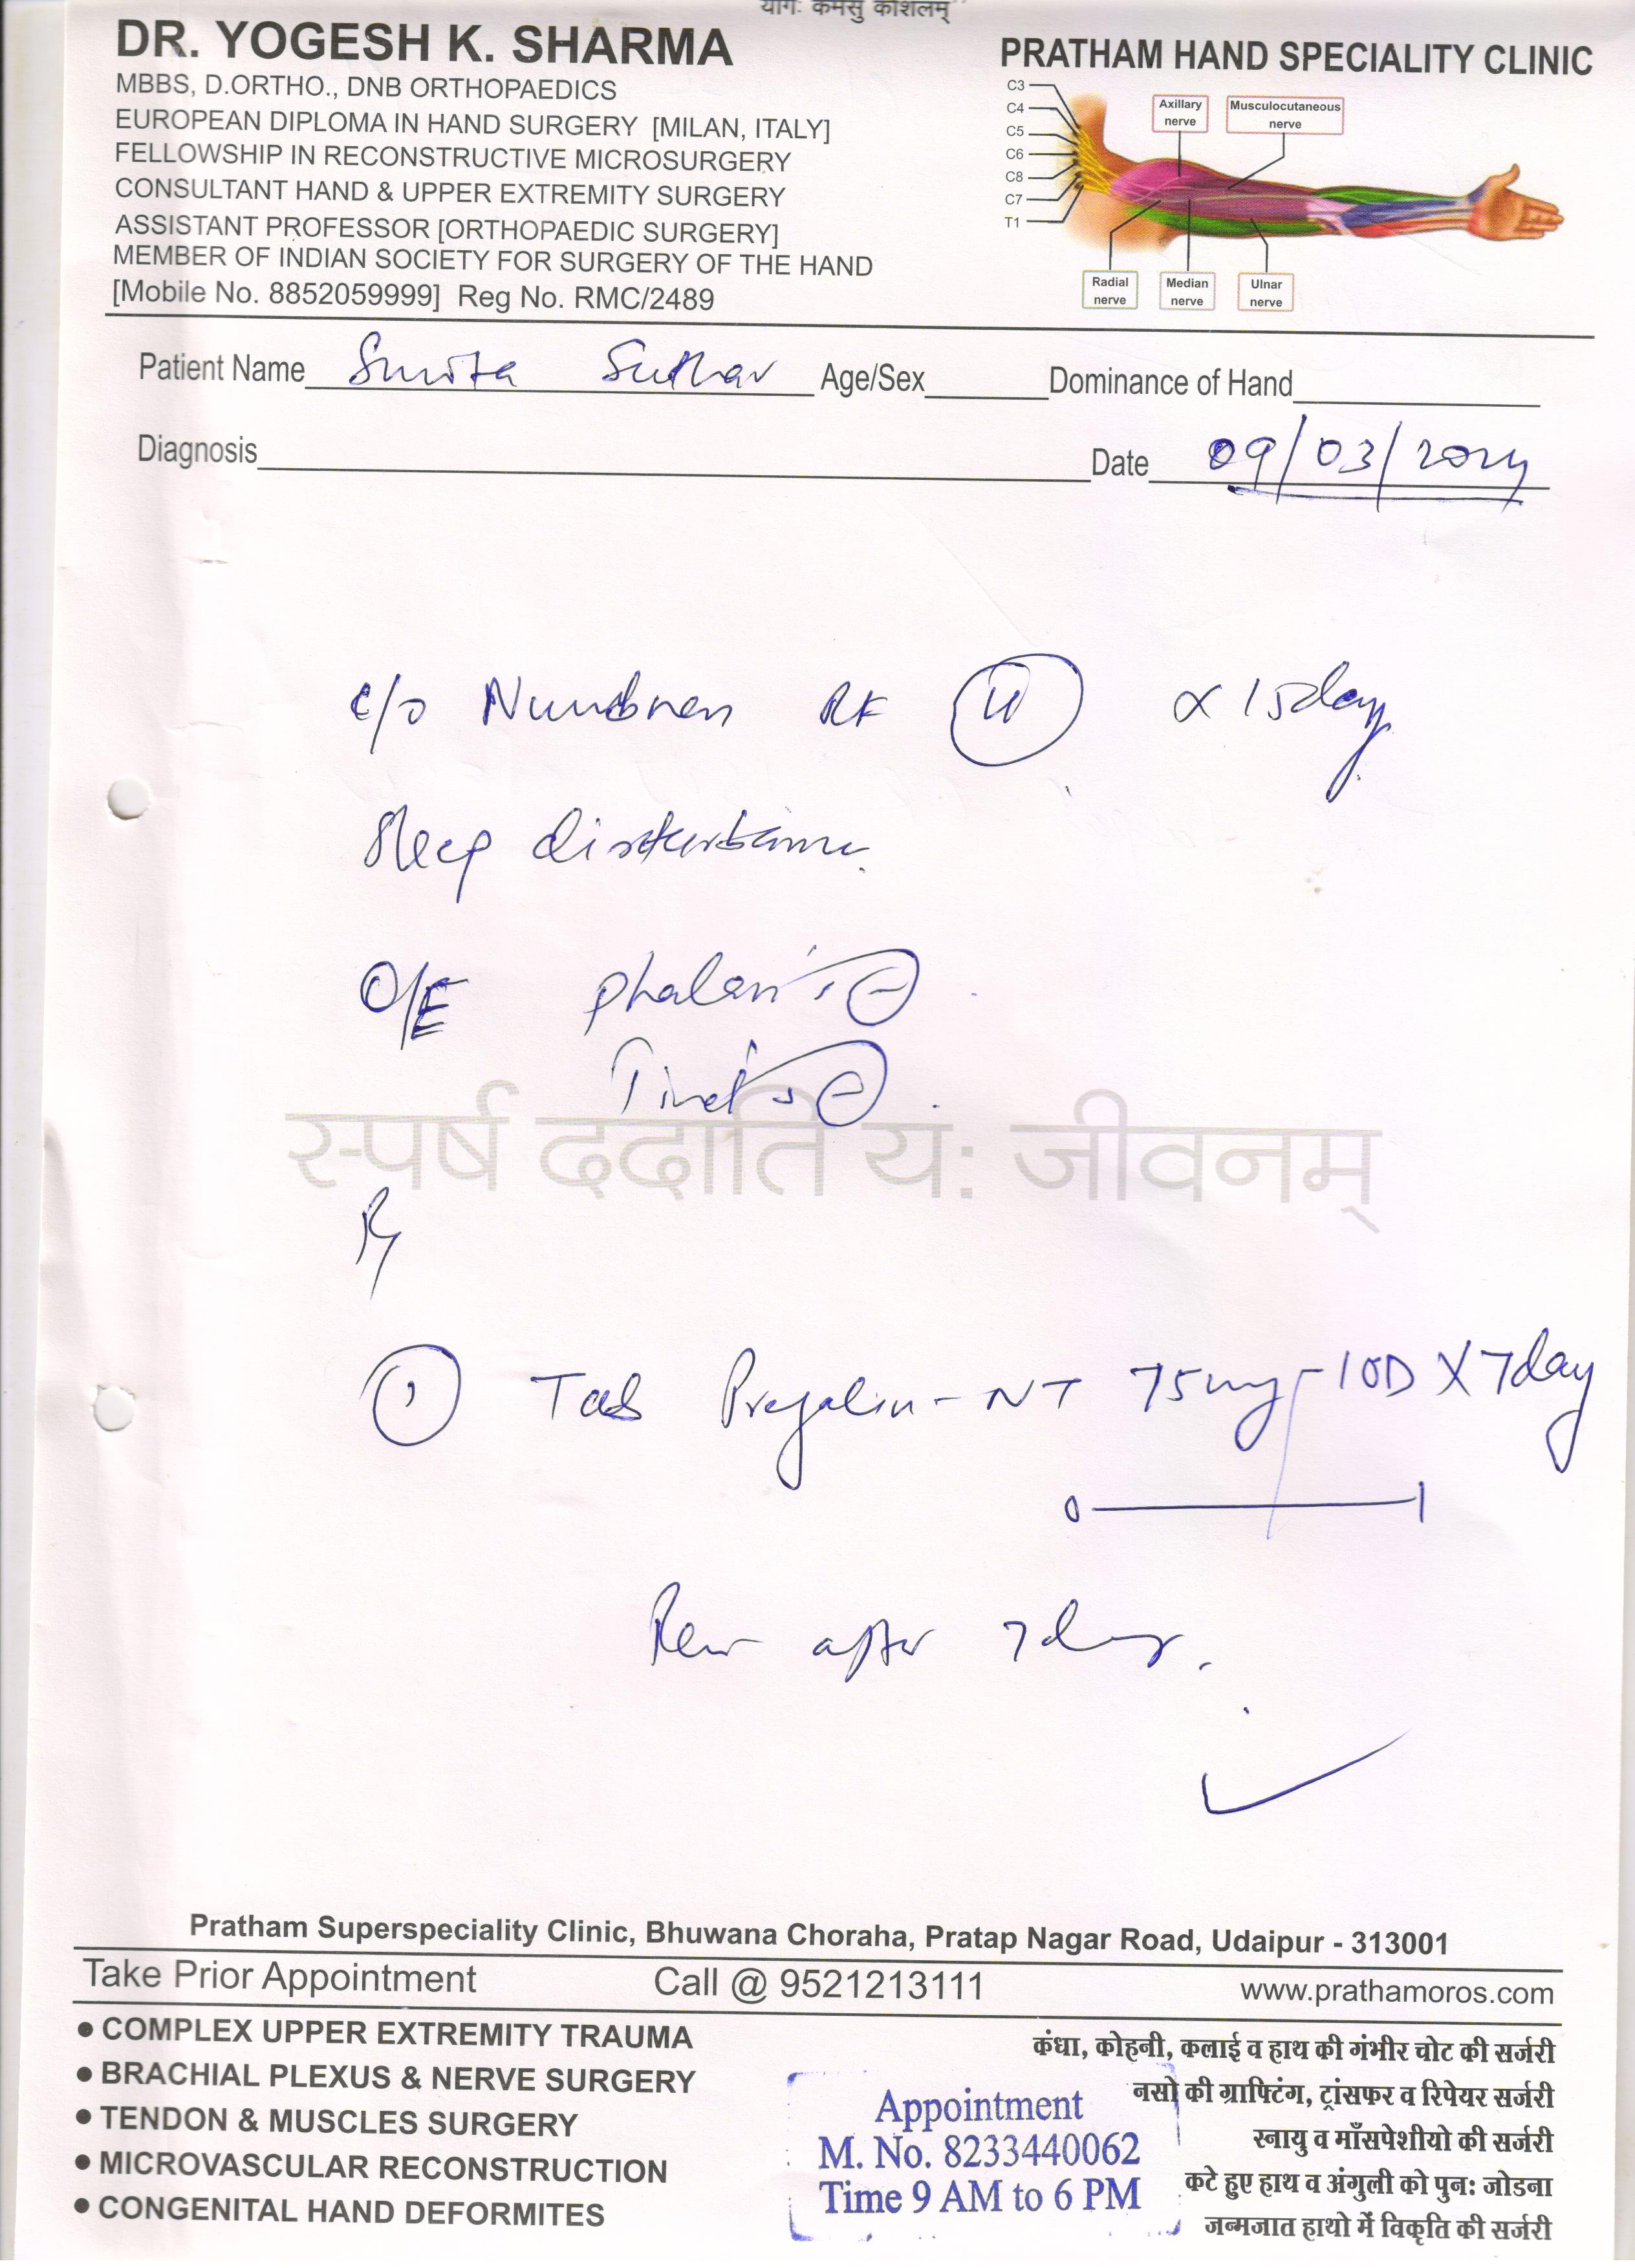 योगः कर्मसु कौशलम्
DR. YOGESH K. SHARMA
MBBS, D.ORTHO., DNB ORTHOPAEDICS
EUROPEAN DIPLOMA IN HAND SURGERY [MILAN, ITALY]
FELLOWSHIP IN RECONSTRUCTIVE MICROSURGERY
CONSULTANT HAND & UPPER EXTREMITY SURGERY
ASSISTANT PROFESSOR [ORTHOPAEDIC SURGERY]
MEMBER OF INDIAN SOCIETY FOR SURGERY OF THE HAND
[Mobile No. 8852059999] Reg No. RMC/2489
PRATHAM HAND SPECIALITY CLINIC
C3
C4
C5
C6
C8
C7
T1
Axillary nerve
Musculocutaneous nerve
Radial nerve
Median nerve
Ulnar nerve
Patient Name Suthar Age/Sex Dominance of Hand
Diagnosis Date 09/03/2024
c/o Numbness RF x 15day
Sleep disturbance
O/E Phalen's (-)
Tinel's (-)
स्पर्ष ददाति यः जीवनम्
Rx
(1) Tab Pregalin-NT 75mg - 1OD X 7day
0 — 1
Rew after 7day
Pratham Superspeciality Clinic, Bhuwana Choraha, Pratap Nagar Road, Udaipur - 313001
Take Prior Appointment Call @ 9521213111 www.prathamoros.com
• COMPLEX UPPER EXTREMITY TRAUMA
• BRACHIAL PLEXUS & NERVE SURGERY
• TENDON & MUSCLES SURGERY
• MICROVASCULAR RECONSTRUCTION
• CONGENITAL HAND DEFORMITES
Appointment
M. No. 8233440062
Time 9 AM to 6 PM
कंधा, कोहनी, कलाई व हाथ की गंभीर चोट की सर्जरी
नसो की ग्राफ्टिंग, ट्रांसफर व रिपेयर सर्जरी
स्नायु व माँसपेशीयो की सर्जरी
कटे हुए हाथ व अंगुली को पुनः जोडना
जन्मजात हाथो में विकृति की सर्जरी